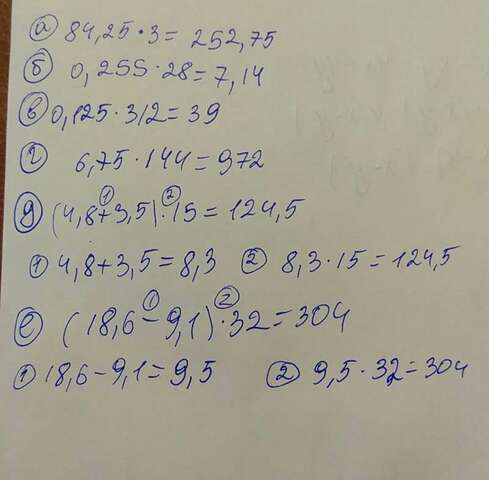 а) 84,25 · 3 = 252,75
б) 0,255 · 28 = 7,14
в) 0,125 · 312 = 39
г) 6,75 · 144 = 972
д) (4,8 +① 3,5) ·② 15 = 124,5
① 4,8 + 3,5 = 8,3 ② 8,3 · 15 = 124,5
е) (18,6 −① 9,1) ·② 32 = 304
① 18,6 − 9,1 = 9,5 ② 9,5 · 32 = 304